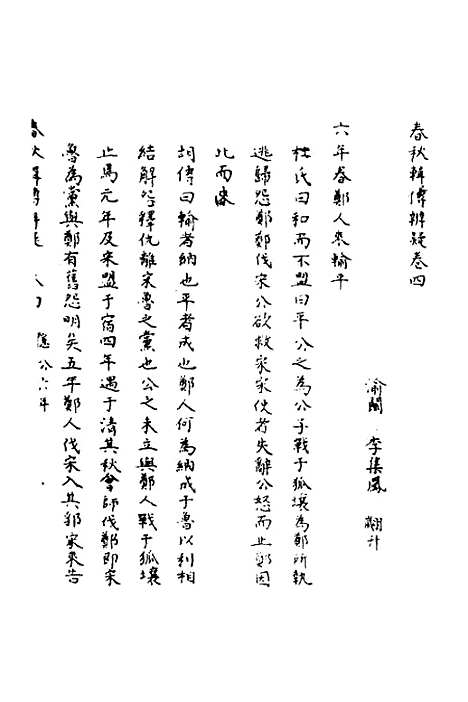 春秋輯傳辨疑卷四
渝關 李集鳳 翽升
六年春鄭人來輸平
杜氏曰和而不盟曰平公之為公子戰于狐壤為鄭所執
逃歸怨鄭鄭伐宋公欲救宋宋使者失辭公怒而止鄭因
此而來
胡傳曰輸者納也平者成也鄭人何為納成于魯以利相
結解怨釋仇離宋魯之黨也公之未立與鄭人戰于狐壤
止焉元年及宋盟于宿四年遇于清其秋會師伐鄭即宋
魯為黨與鄭有舊怨明矣五年鄭人伐宋入其郛宋來告
春秋輯傳辨疑 隱公六年